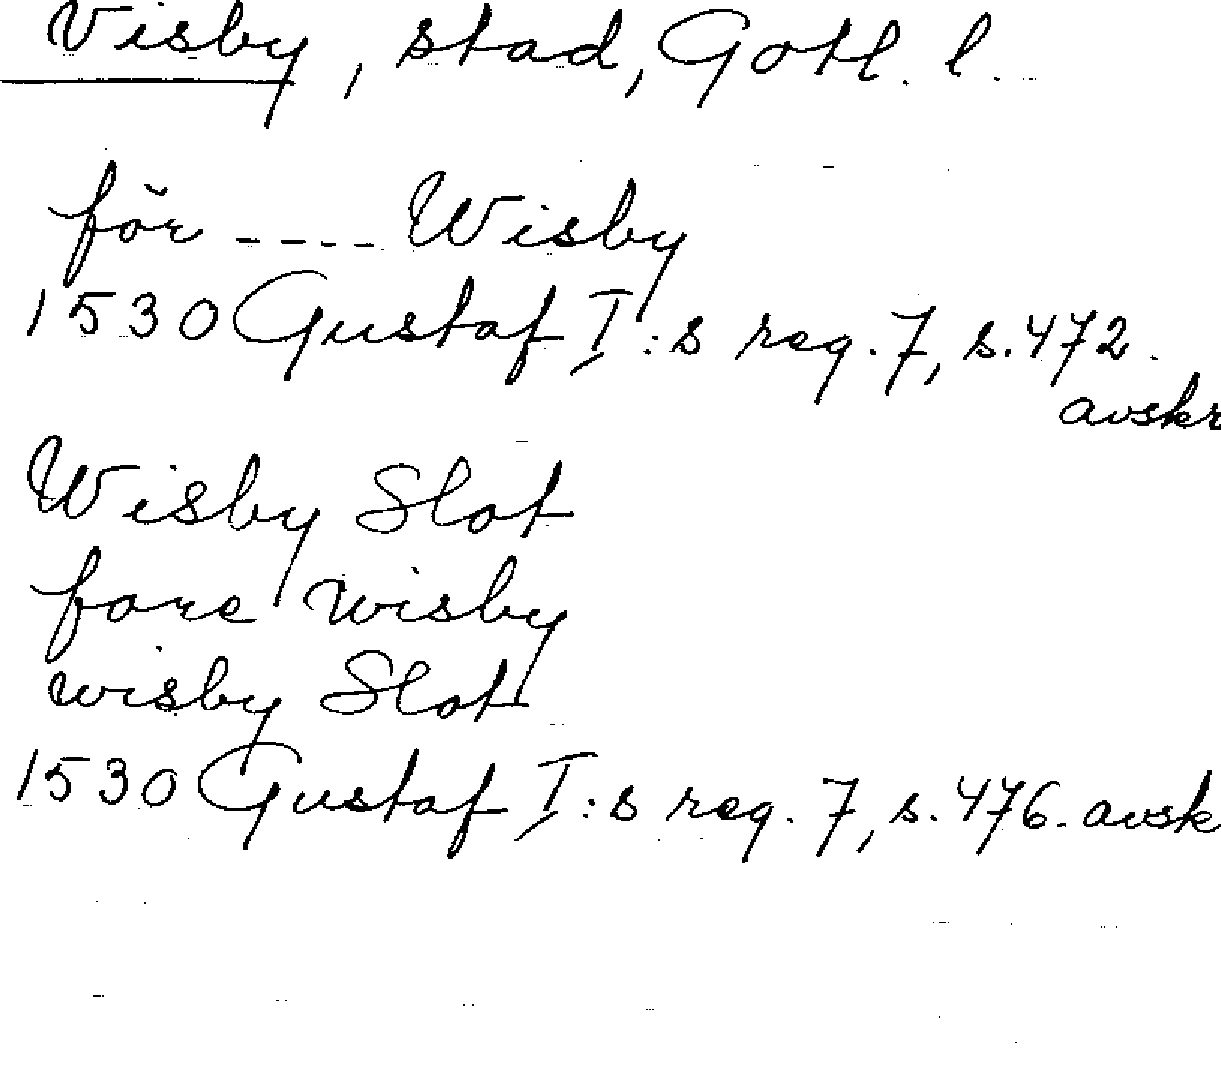 Visby, stad, Gotl. l.
för ---- Wisby
1530 Gustaf I:s reg. 7, s. 472.
avskr
Wisby Slot
fore wisby
wisby Slot
1530 Gustaf I:s reg. 7, s. 476. avsk